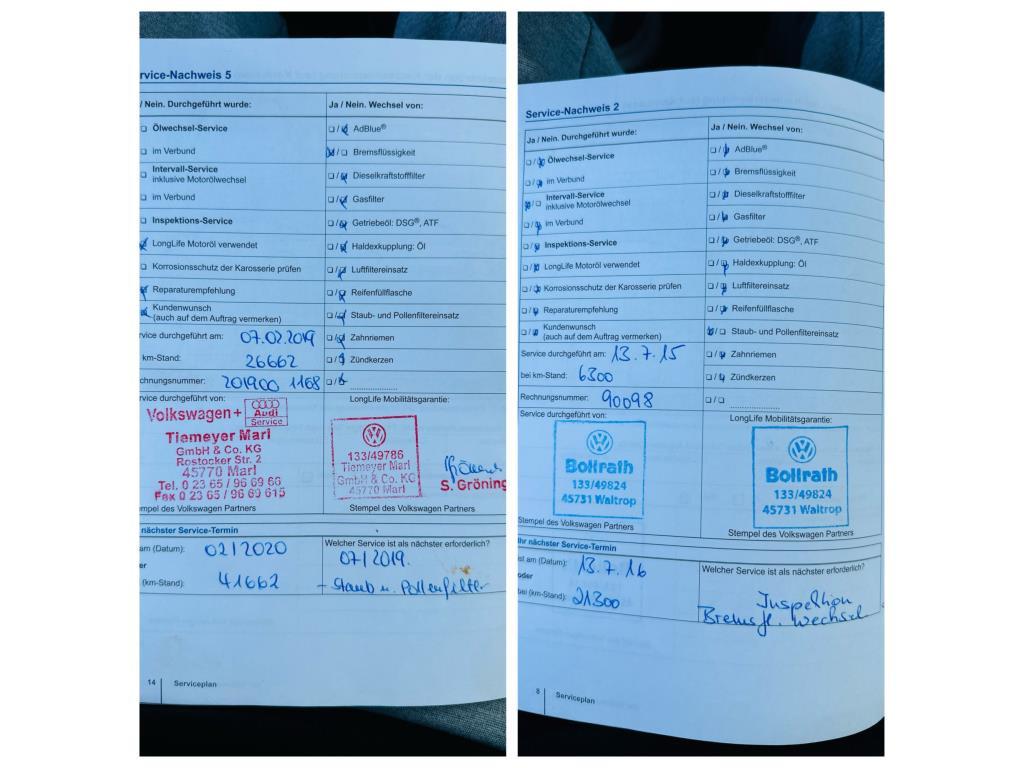 rvice-Nachweis 5
/ Nein. Durchgeführt wurde:
Ja / Nein. Wechsel von:
Ölwechsel-Service
AdBlue®
im Verbund
Bremsflüssigkeit
Intervall-Service
inklusive Motorölwechsel
Dieselkraftstofffilter
im Verbund
Gasfilter
Inspektions-Service
Getriebeöl: DSG®, ATF
LongLife Motoröl verwendet
Haldexkupplung: Öl
Korrosionsschutz der Karosserie prüfen
Luftfiltereinsatz
Reparaturempfehlung
Reifenfüllflasche
Kundenwunsch
(auch auf dem Auftrag vermerken)
Staub- und Pollenfiltereinsatz
rvice durchgeführt am: 07.02.2019
Zahnriemen
km-Stand: 26662
Zündkerzen
chnungsnummer: 201900 1168
rvice durchgeführt von:
LongLife Mobilitätsgarantie:
Volkswagen + Audi
Service
Tiemeyer Marl
GmbH & Co. KG
Rostocker Str. 2
45770 Marl
Tel. 0 23 65 / 96 69 66
Fax 0 23 65 / 96 69 615
133/49786
Tiemeyer Marl
GmbH & Co. KG
45770 Marl
S. Gröning
empel des Volkswagen Partners
Stempel des Volkswagen Partners
nächster Service-Termin
am (Datum): 02/2020
Welcher Service ist als nächster erforderlich?
07/2019.
er
(km-Stand): 41662
- Staub u. Pollenfilter
14 Serviceplan
Service-Nachweis 2
Ja / Nein. Durchgeführt wurde:
Ja / Nein. Wechsel von:
Ölwechsel-Service
AdBlue®
im Verbund
Bremsflüssigkeit
Intervall-Service
inklusive Motorölwechsel
Dieselkraftstofffilter
im Verbund
Gasfilter
Inspektions-Service
Getriebeöl: DSG®, ATF
LongLife Motoröl verwendet
Haldexkupplung: Öl
Korrosionsschutz der Karosserie prüfen
Luftfiltereinsatz
Reparaturempfehlung
Reifenfüllflasche
Kundenwunsch
(auch auf dem Auftrag vermerken)
Staub- und Pollenfiltereinsatz
Service durchgeführt am: 13.7.15
Zahnriemen
bei km-Stand: 6300
Zündkerzen
Rechnungsnummer: 90098
Service durchgeführt von:
LongLife Mobilitätsgarantie:
Bollrath
133/49824
45731 Waltrop
Bollrath
133/49824
45731 Waltrop
Stempel des Volkswagen Partners
Stempel des Volkswagen Partners
Ihr nächster Service-Termin
ist am (Datum): 13.7.16
Welcher Service ist als nächster erforderlich?
oder
bei (km-Stand): 21300
Inspektion
Bremsfl. Wechsel
8 Serviceplan